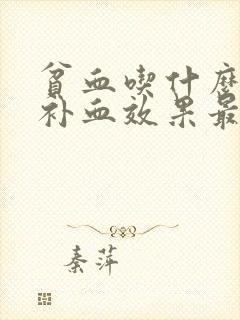 贫血喫什麽
补血效果最
秦萍